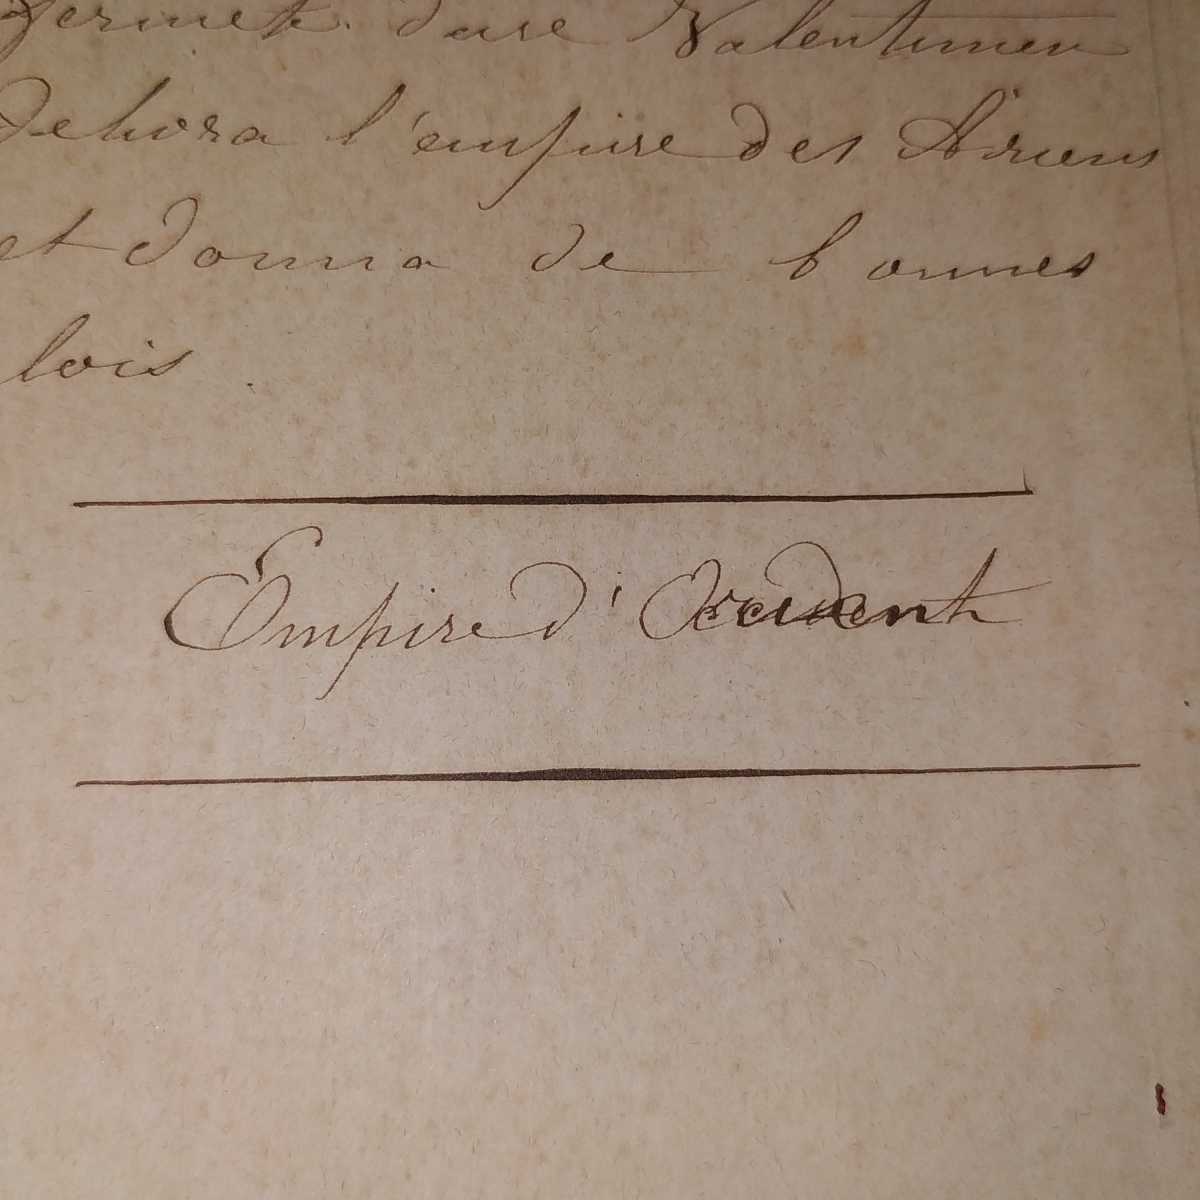 dure Valentinien
l'empire des Ariens
et donna de bonnes
lois.
Empire d'Occident